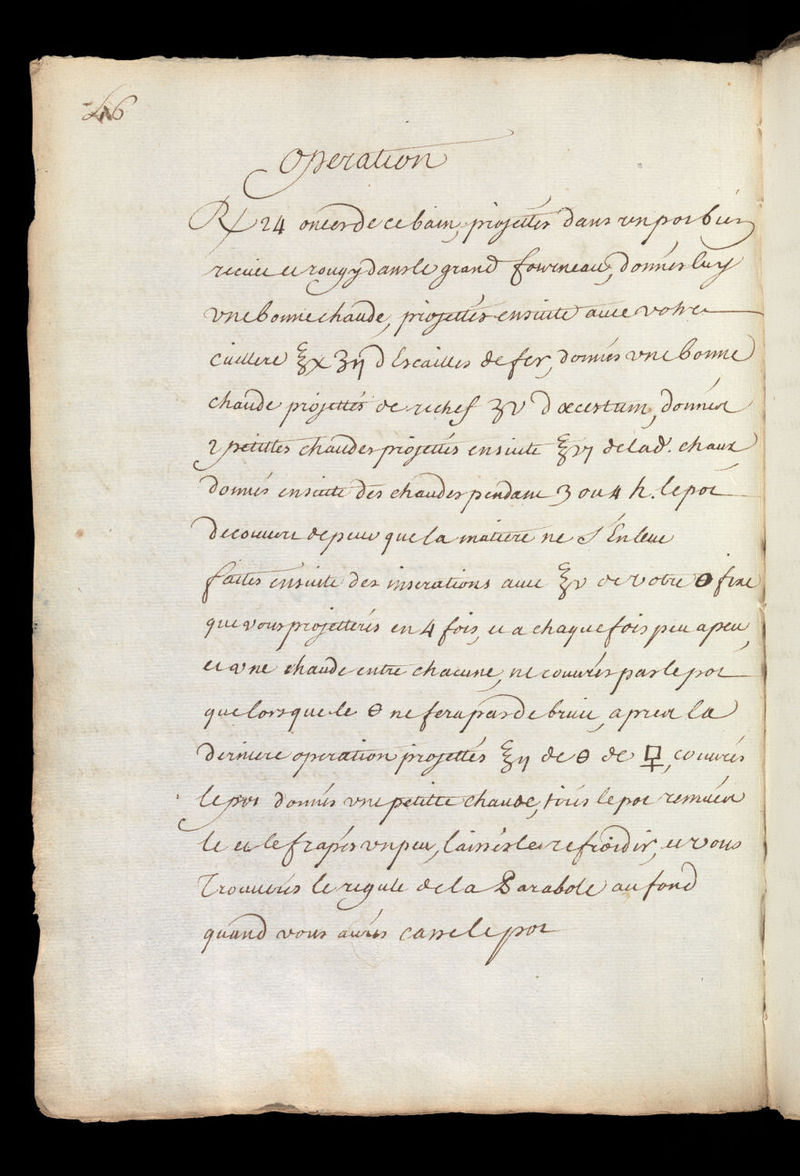 46
Operation
℞ 24 onces de ce bain, projettés dans un pot bien
recuit et rougy dans le grand fourneau, donnés luy
une bonne chaude, projettés ensuitte avec votre
cuillere ℥x ʒij d Escailles de fer, donnés une bonne
chaude projettés de rechef ʒv d'œcestum, donnés
2 petittes chaudes projettés ensuite ℥vj de lad. chaux
donnés ensuitte des chaudes pendant 3 ou 4 h. le pot
decouvert de peur que la matiere ne s'Enleve
faites ensuite des inserations avec ℥v de votre 🜔 fixe
que vous projetterés en 4 fois, et a chaque fois peu a peu,
et une chaude entre chacune, ne couvrés pas le pot
que lorsque le 🜔 ne fera pas de bruit, aprés la
derniere operation projettés ℥ij de 🜔 de 🜿, couvrés
le pot donnés une petitte chaude, tirés le pot remués
le et le frapés un peu, laissés le refroidir, et vous
trouverés le regule de la Parabole au fond
quand vous aurés cassé le pot